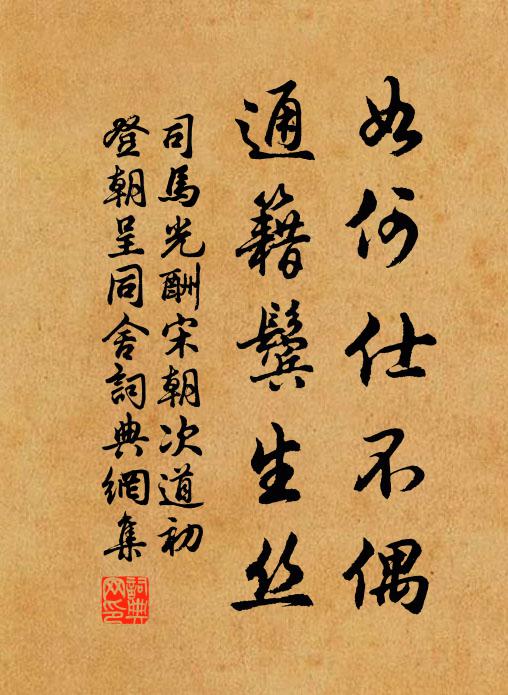 如何仕不偶
通籍鬢生丝
司馬光酬宋朝次道初
登朝呈同舍詞典網集
詞典
网印